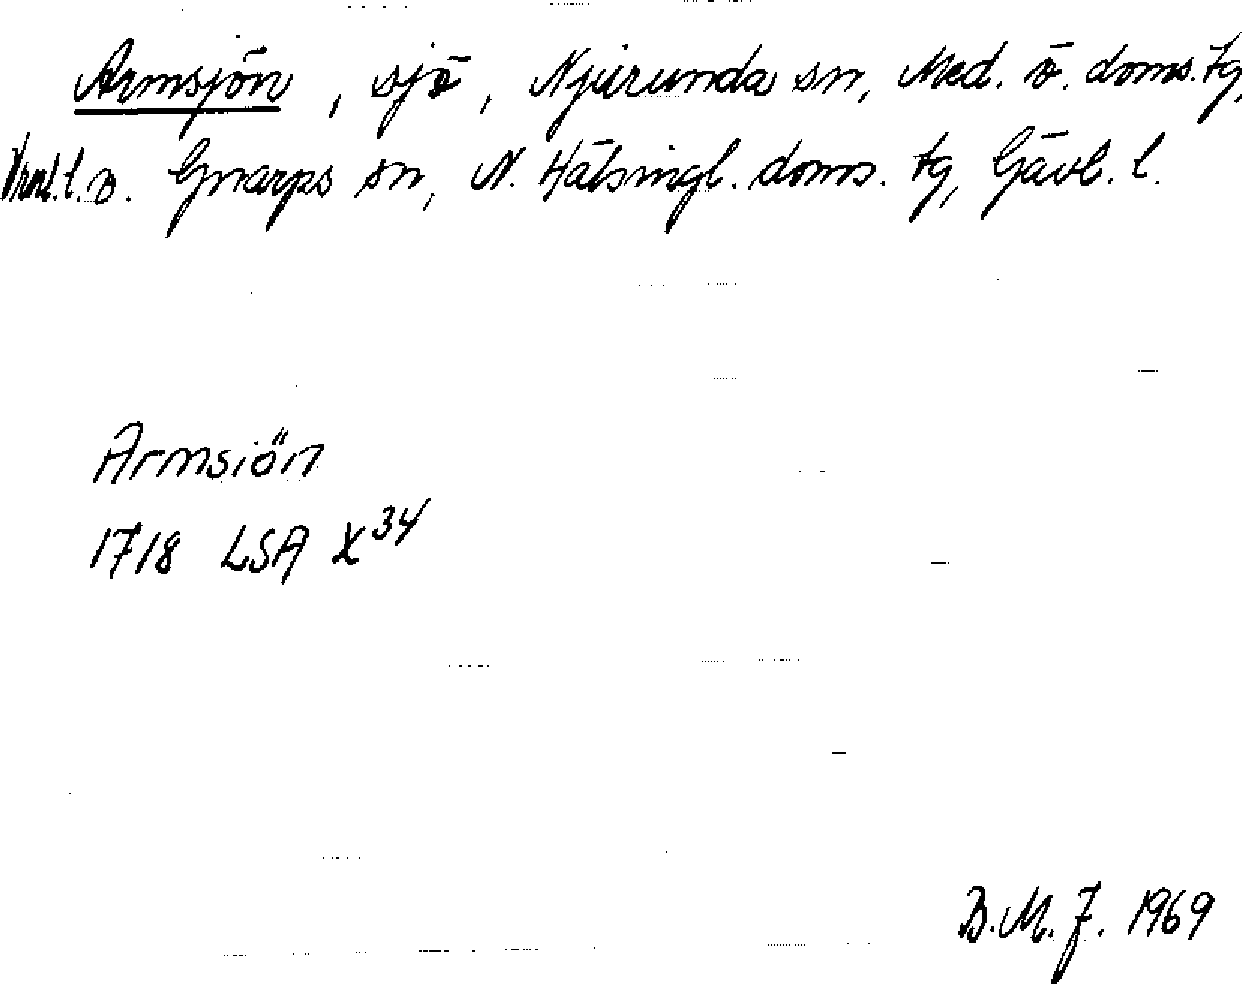 Armsjön, sjö, Njurunda sn, Med. ö. doms. tg,
Vnrl. l. o. Gnarps sn, N. Hälsingl. doms. tg, Gävl. l.
Armsiön
1718 LSA X 34
B.M.J. 1969